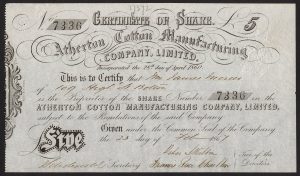 CERTIFICATE OF SHARE.
No. 7336 £5
Atherton Cotton Manufacturing
COMPANY, LIMITED.
Incorporated the day of April 1861
This is to Certify that Mr James
of 109 High St Bolton
is the Proprietor of the SHARE Number 7336 in the
ATHERTON COTTON MANUFACTURING COMPANY, LIMITED,
subject to the Regulations of the said Company.
Given under the Common Seal of the Company
Five
the 23 day of
John
Secretary Two of the
Directors